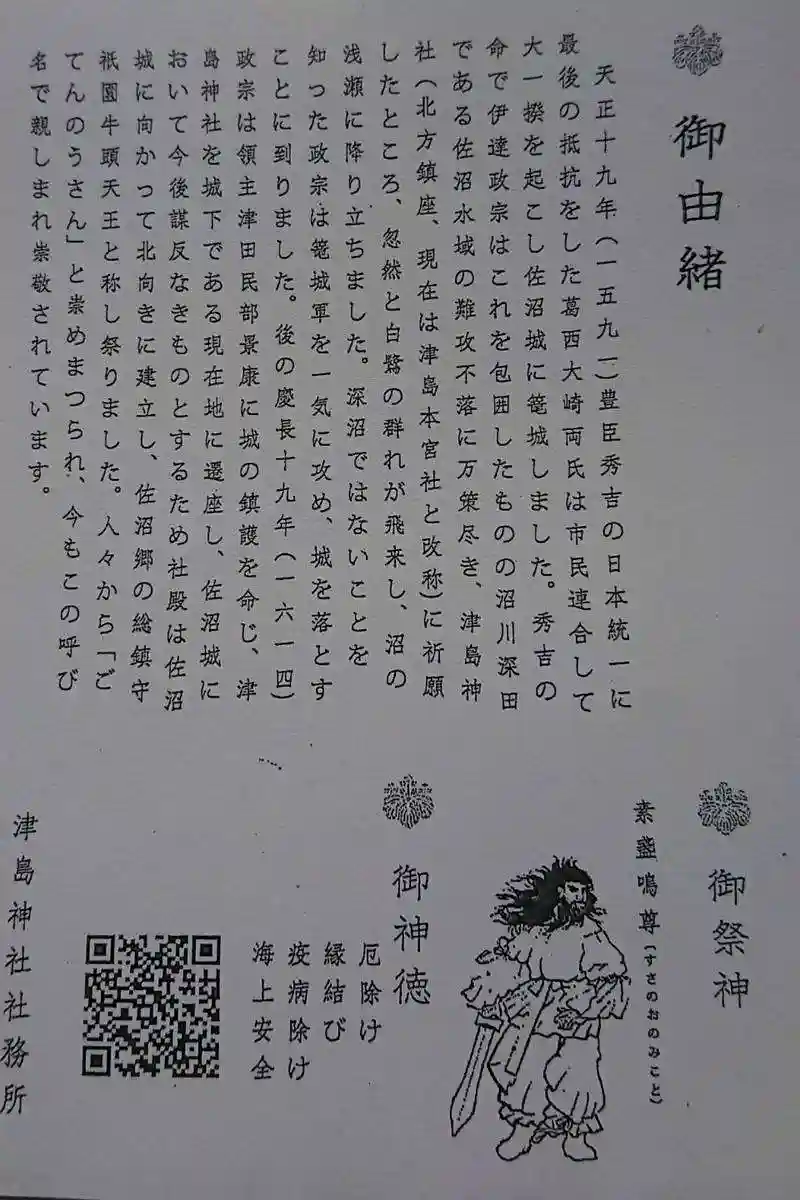 御由緒
天正十九年(一五九一)豊臣秀吉の日本統一に
最後の抵抗をした葛西大崎両氏は市民連合して
大一揆を起こし佐沼城に篭城しました。秀吉の
命で伊達政宗はこれを包囲したものの沼川深田
である佐沼水域の難攻不落に万策尽き、津島神
社(北方鎮座、現在は津島本宮社と改称)に祈願
したところ、忽然と白鷺の群れが飛来し、沼の
浅瀬に降り立ちました。深沼ではないことを
知った政宗は篭城軍を一気に攻め、城を落とす
ことに到りました。後の慶長十九年(一六一四)
政宗は領主津田民部景康に城の鎮護を命じ、津
島神社を城下である現在地に遷座し、佐沼城に
おいて今後謀反なきものとするため社殿は佐沼
城に向かって北向きに建立し、佐沼郷の総鎮守
祇園牛頭天王と称し祭りました。人々から「ご
てんのうさん」と崇めまつられ、今もこの呼び
名で親しまれ崇敬されています。
御祭神
素盞鳴尊(すさのおのみこと)
御神徳
厄除け
縁結び
疫病除け
海上安全
津島神社社務所